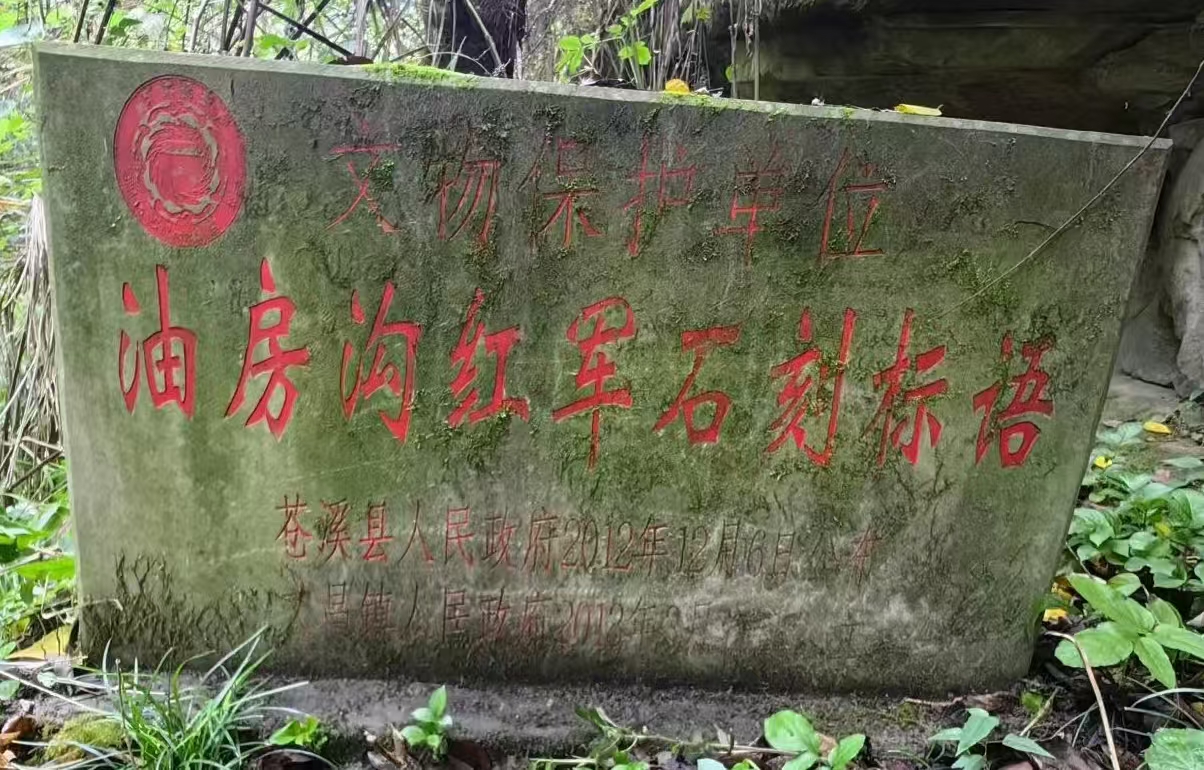 文物保护单位
油房沟红军石刻标语
苍溪县人民政府2012年12月6日公布
昌镇人民政府2012年